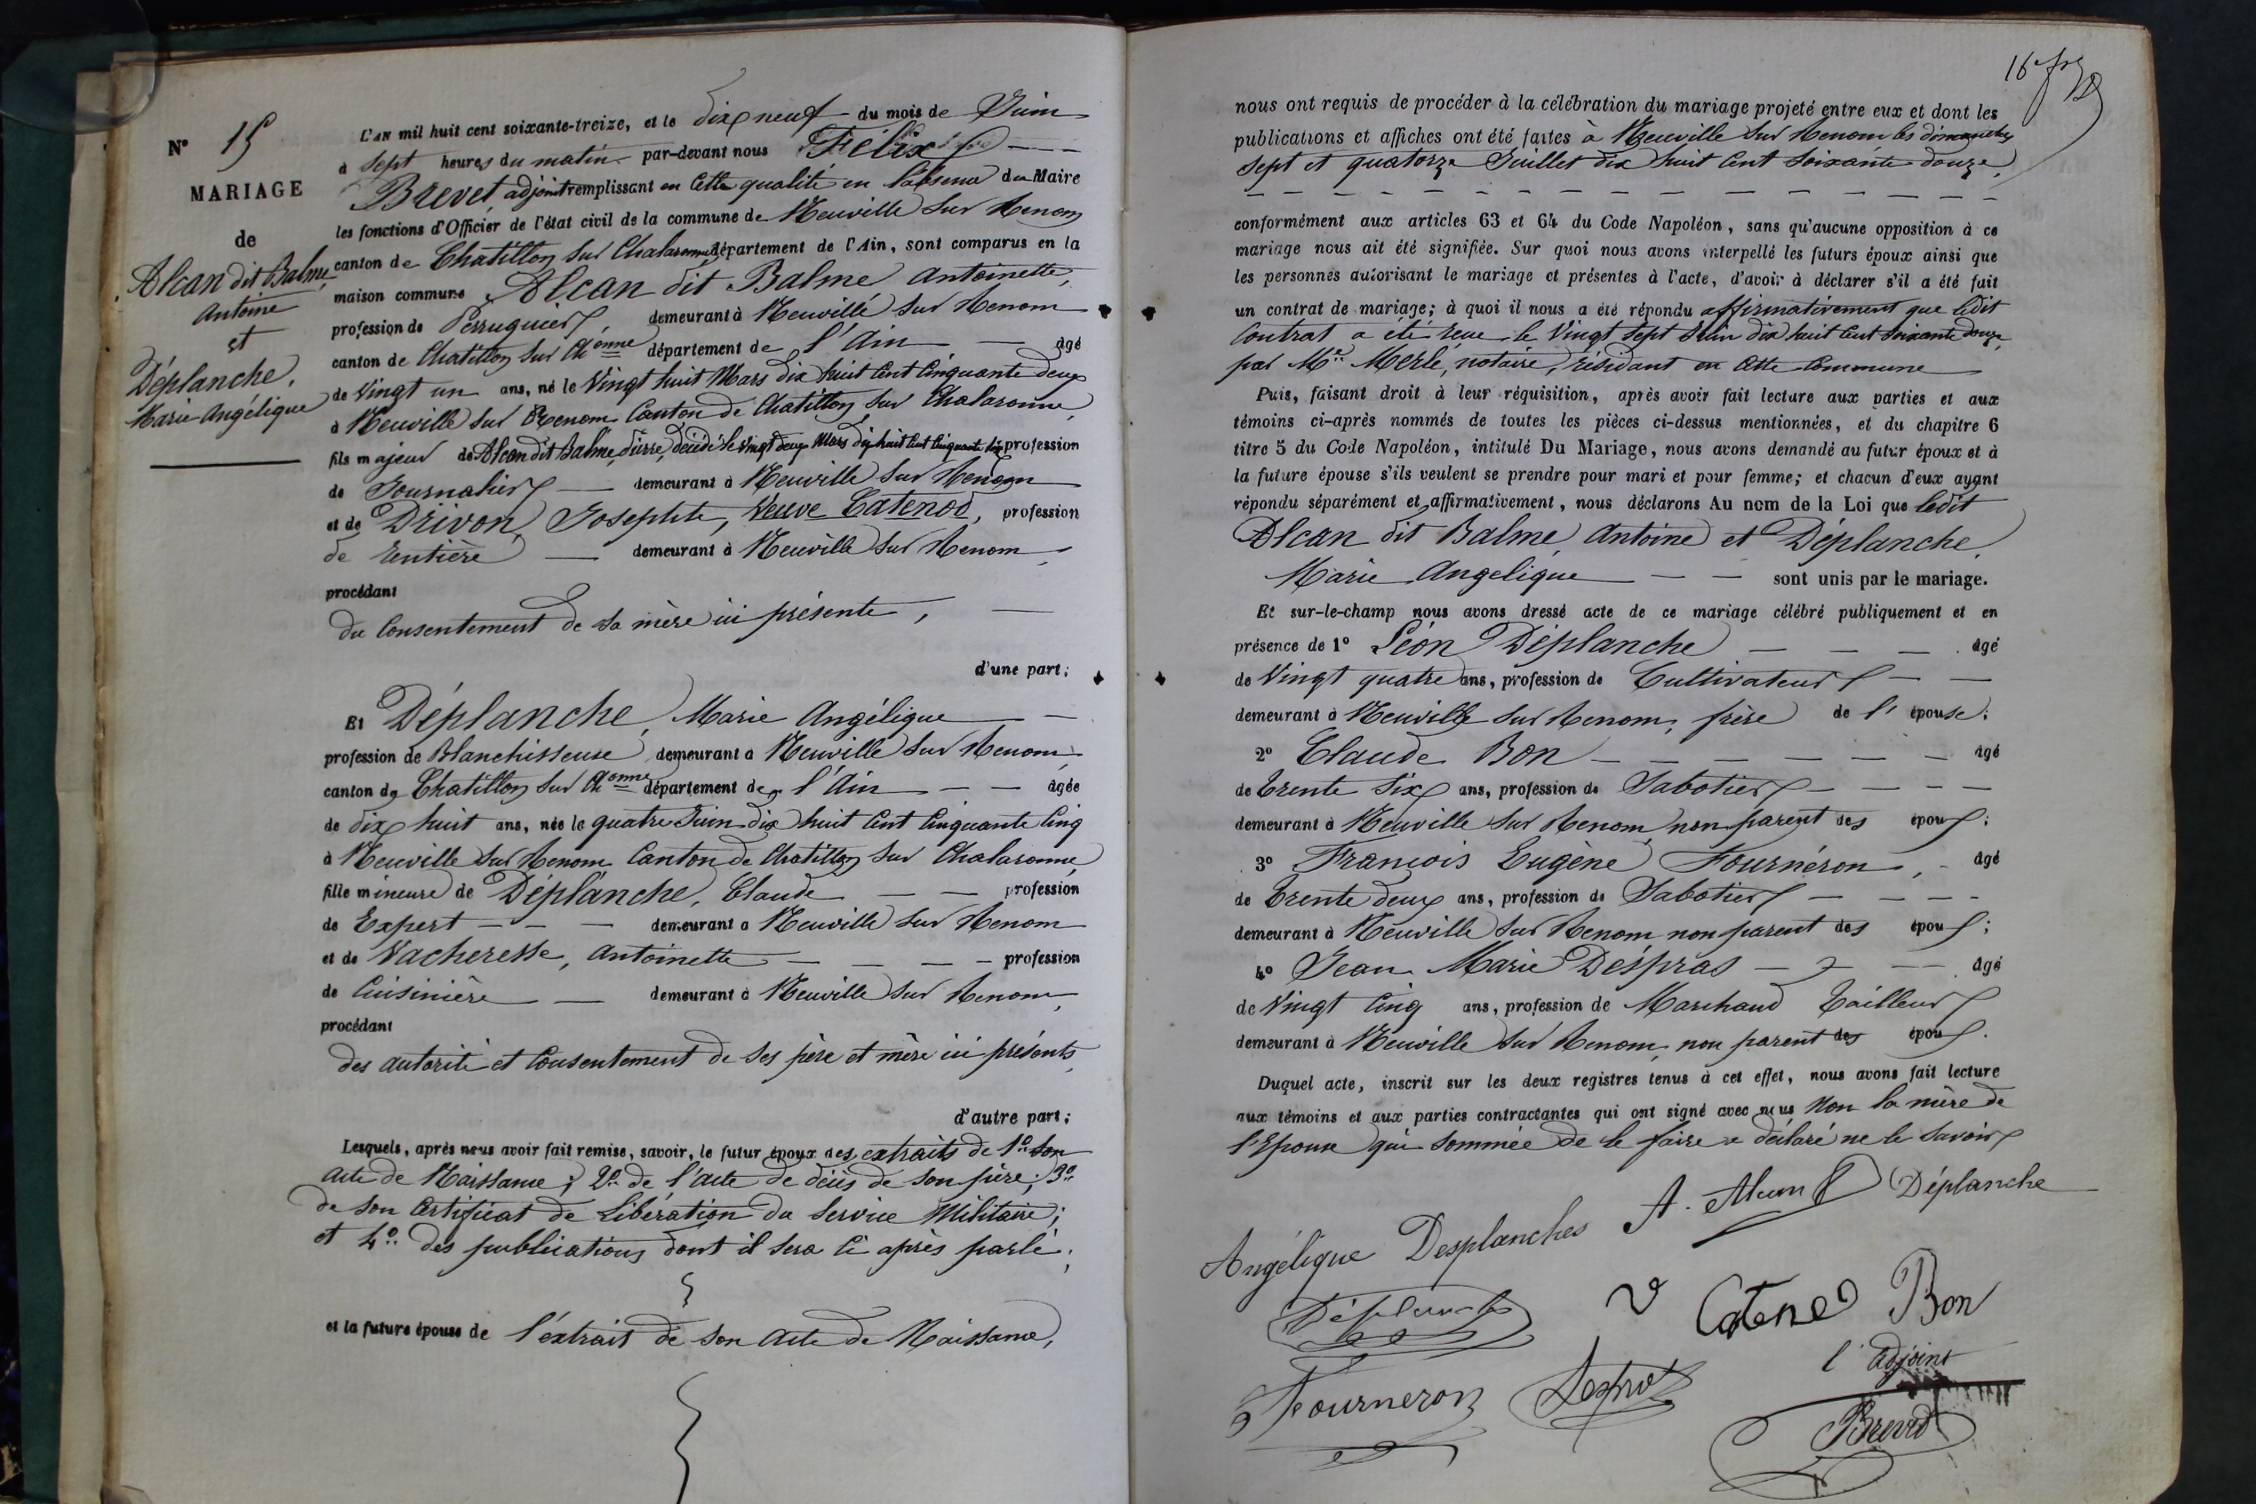 N° 15
MARIAGE
de
Alcan dit Balme
Antoine
et
Déplanche,
Marie Angélique
L'AN mil huit cent soixante-treize, et le dix neuf du mois de Juin
à sept heures du matin par-devant nous Félix
Brevet, adjoint remplissant en cette qualité en l'absence du Maire
les fonctions d'Officier de l'état civil de la commune de Neuville sur Renom
canton de Chatillon sur Chalaronne département de l'Ain, sont comparus en la
maison commune Alcan dit Balme Antoinette,
profession de Perruquier, demeurant à Neuville sur Renom
canton de Chatillon sur Ch onne département de l'Ain — âgé
de Vingt un ans, né le Vingt huit Mars dix huit cent cinquante deux
à Neuville sur Renom Canton de Chatillon sur Chalaronne,
fils majeur de Alcan dit Balme, Pierre, décédé le vingt deux Mars dix huit cent cinquante profession
de Journalier — demeurant à Neuville sur Renom
et de Drivon, Josephte, Veuve Catenod, profession
de Rentière — demeurant à Neuville sur Renom,
procédant
du consentement de sa mère ici présente, —
d'une part;
Et Déplanche, Marie Angélique —
profession de Blanchisseuse demeurant à Neuville sur Renom,
canton de Chatillon sur Ch onne département de l'Ain — — âgée
de dix huit ans, née le quatre Juin dix huit cent cinquante cinq
à Neuville sur Renom Canton de Chatillon sur Chalaronne,
fille mineure de Déplanche, Claude — — profession
de Expert — — — demeurant à Neuville sur Renom
et de Vacheresse, Antoinette — — — — profession
de Cuisinière — demeurant à Neuville sur Renom,
procédant
des autorité et consentement de ses père et mère ici présents,
d'autre part;
Lesquels, après nous avoir fait remise, savoir, le futur époux des extraits de 1° son
acte de Naissance; 2° de l'acte de décès de son père; 3°
de son Certificat de Libération du Service Militaire;
et 4° des publications dont il sera ci après parlé;
et la future épouse de l'extrait de son acte de Naissance,
16
nous ont requis de procéder à la célébration du mariage projeté entre eux et dont les
publications et affiches ont été faites à Neuville sur Renom les dimanches
sept et quatorze Juillet dix huit cent soixante douze,
conformément aux articles 63 et 64 du Code Napoléon, sans qu'aucune opposition à ce
mariage nous ait été signifiée. Sur quoi nous avons interpellé les futurs époux ainsi que
les personnes autorisant le mariage et présentes à l'acte, d'avoir à déclarer s'il a été fait
un contrat de mariage; à quoi il nous a été répondu affirmativement que ledit
Contrat a été reçu le Vingt sept Juin dix huit cent soixante douze,
par Me Merle, notaire, résidant en cette Commune
Puis, faisant droit à leur réquisition, après avoir fait lecture aux parties et aux
témoins ci-après nommés de toutes les pièces ci-dessus mentionnées, et du chapitre 6
titre 5 du Code Napoléon, intitulé Du Mariage, nous avons demandé au futur époux et à
la future épouse s'ils veulent se prendre pour mari et pour femme; et chacun d'eux ayant
répondu séparément et affirmativement, nous déclarons Au nom de la Loi que ledit
Alcan dit Balme Antoine et Déplanche,
Marie Angelique — — sont unis par le mariage.
Et sur-le-champ nous avons dressé acte de ce mariage célébré publiquement et en
présence de 1° Léon Déplanche — — — âgé
de Vingt quatre ans, profession de Cultivateur — —
demeurant à Neuville sur Renom, frère de l'épouse;
2° Claude Bon — — — — — — âgé
de Trente Six ans, profession de Sabotier — — — —
demeurant à Neuville sur Renom, non parent des époux;
3° François Eugène Fournéron, — âgé
de Trente deux ans, profession de Sabotier — — — —
demeurant à Neuville sur Renom non parent des époux;
4° Jean Marie Déspras — — — âgé
de Vingt Cinq ans, profession de Marchand Tailleur
demeurant à Neuville sur Renom, non parent des époux.
Duquel acte, inscrit sur les deux registres tenus à cet effet, nous avons fait lecture
aux témoins et aux parties contractantes qui ont signé avec nous Non la mère de
l'Epouse qui sommée de le faire a déclaré ne le savoir
Angélique Desplanches A. Alcan Déplanche
Déplanche V Catenod Bon
l'adjoint
Fourneron
Brevet